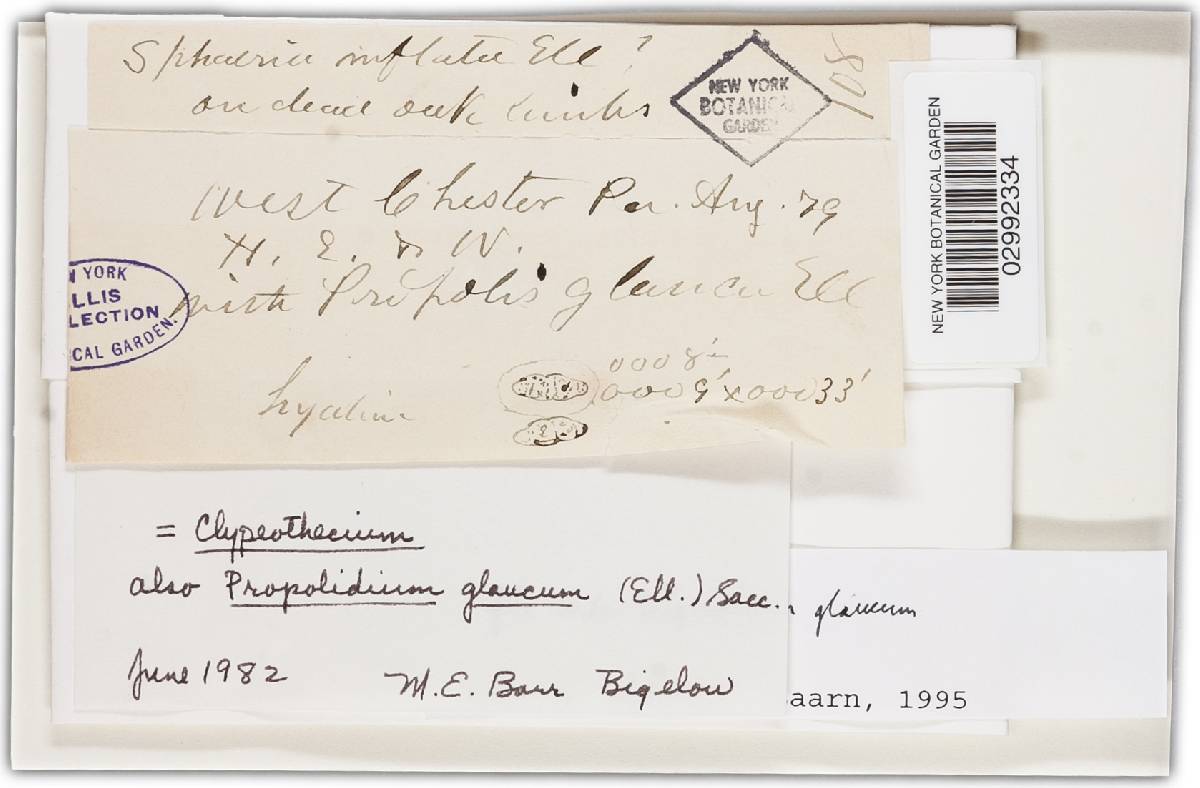 Sphaeria inflata Ell ?
on dead oak limbs
108
NEW YORK
BOTANICAL
GARDEN
West Chester Pa. Aug. 79
H. E. & W.
with Propolis glauca Ell
N YORK
LLIS
LECTION
ICAL GARDEN.
hyaline
0008'
0009' x 00033'
NEW YORK BOTANICAL GARDEN
02992334
= Clypeothecium
also Propolidium glaucum (Ell.) Sacc.
glaucum
June 1982 M. E. Barr Bigelow
aarn, 1995